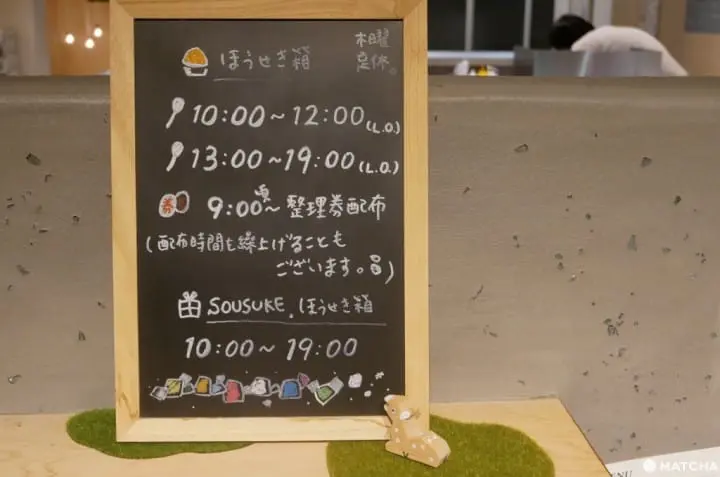 ほうせき箱
木曜
定休。
10:00~12:00(L.O.)
13:00~19:00(L.O.)
券 9:00頃~整理券配布
(配布時間も繰上げることも
ございます。)
SOUSUKE.ほうせき箱
10:00~19:00
MENU
MATCHA